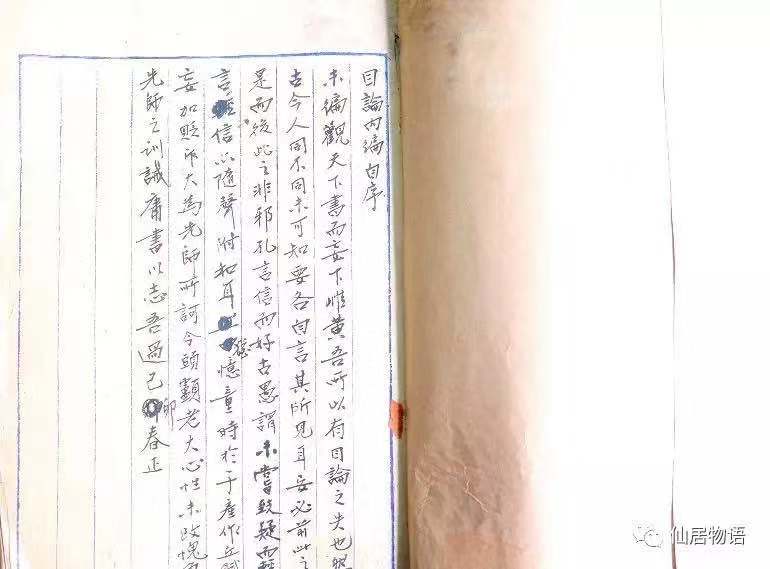 目論內編自序
未徧觀天下書而妄下雌黃吾所以有目論之失也然
古今人同不同未可知要各自言其所見耳妄必前此之
是而後此之非邪孔言信而好古愚謂未嘗致疑而輕
言信以隨聲附和耳猶憶童時於子產作丘賦
妄加貶斥大為先師所訶今頭顱老大心性未改愧
先師之训誡庸書以志吾過己卯春正
仙居物语